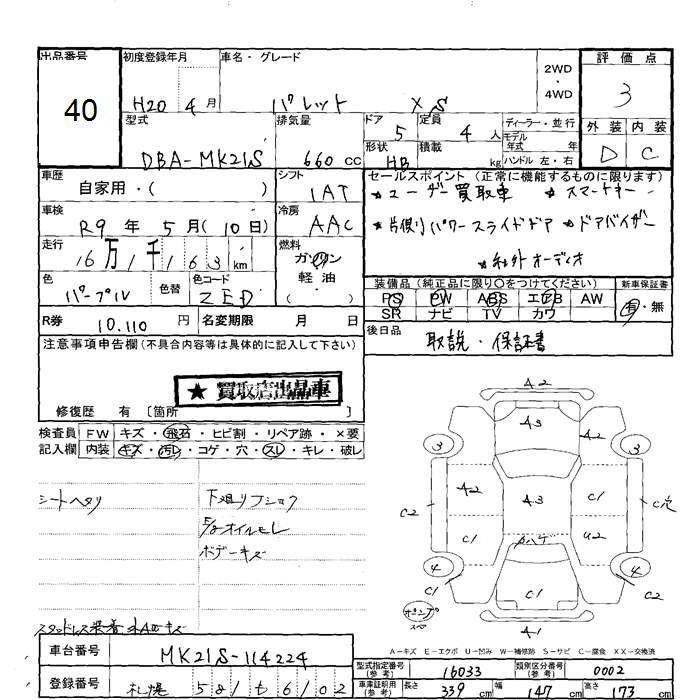 出品番号
初度登録年月
車名・グレード
2WD
・
4WD
評価点
40
H20 4月
パレット XS
3
型式
排気量
ドア
定員
ディーラー・並行
外装 内装
DBA-MK21S
660 cc
5
4人
モデル
年式 年
D C
形状
積載
HB
kg
ハンドル 左・右
車歴
自家用・( )
シフト
1AT
セールスポイント (正常に機能するものに限ります)
★ユーザー買取車 ★スマートキー
車検
R9 年 5 月 (10 日)
冷房
AAC
★片側パワースライドドア ★ドアバイザー
走行
16万1千163 km
燃料
ガソリン
軽油
( )
★社外オーディオ
色
パープル
色替
色コード
ZED
装備品 (純正品に限り○をつけてください)
新車保証書
PS PW ABS エアB AW
SR ナビ TV カワ
有・無
R券
10.110 円
名変期限 月 日
後日品
取説・保証書
注意事項申告欄 (不具合内容等は具体的に記入して下さい)
★ 買取店出品車
修復歴 有 〔箇所 〕
検査員
記入欄
FW キズ・飛石・ヒビ割・リペア跡・×要
内装 キズ・汚レ・コゲ・穴・スレ・キレ・破レ
シートヘタリ
下廻リフショク
オイルモレ
ボデーキズ
スタッドレス装着
A2
A3
A2
3
3
A2
A3
C1
C2
C穴
C1
ハゲ
U2
4
4
C1
C2
スペ
A1
A-キズ E-エクボ U-凹み W-補修跡 S-サビ C-腐食 XX-交換済
車台番号
MK21S-114224
型式指定番号
(参考)
16033
類別区分番号
(参考)
0002
登録番号
札幌 581 も 6102
車車証明用
(参考)
長さ 339 cm
幅 147 cm
高さ 173 cm